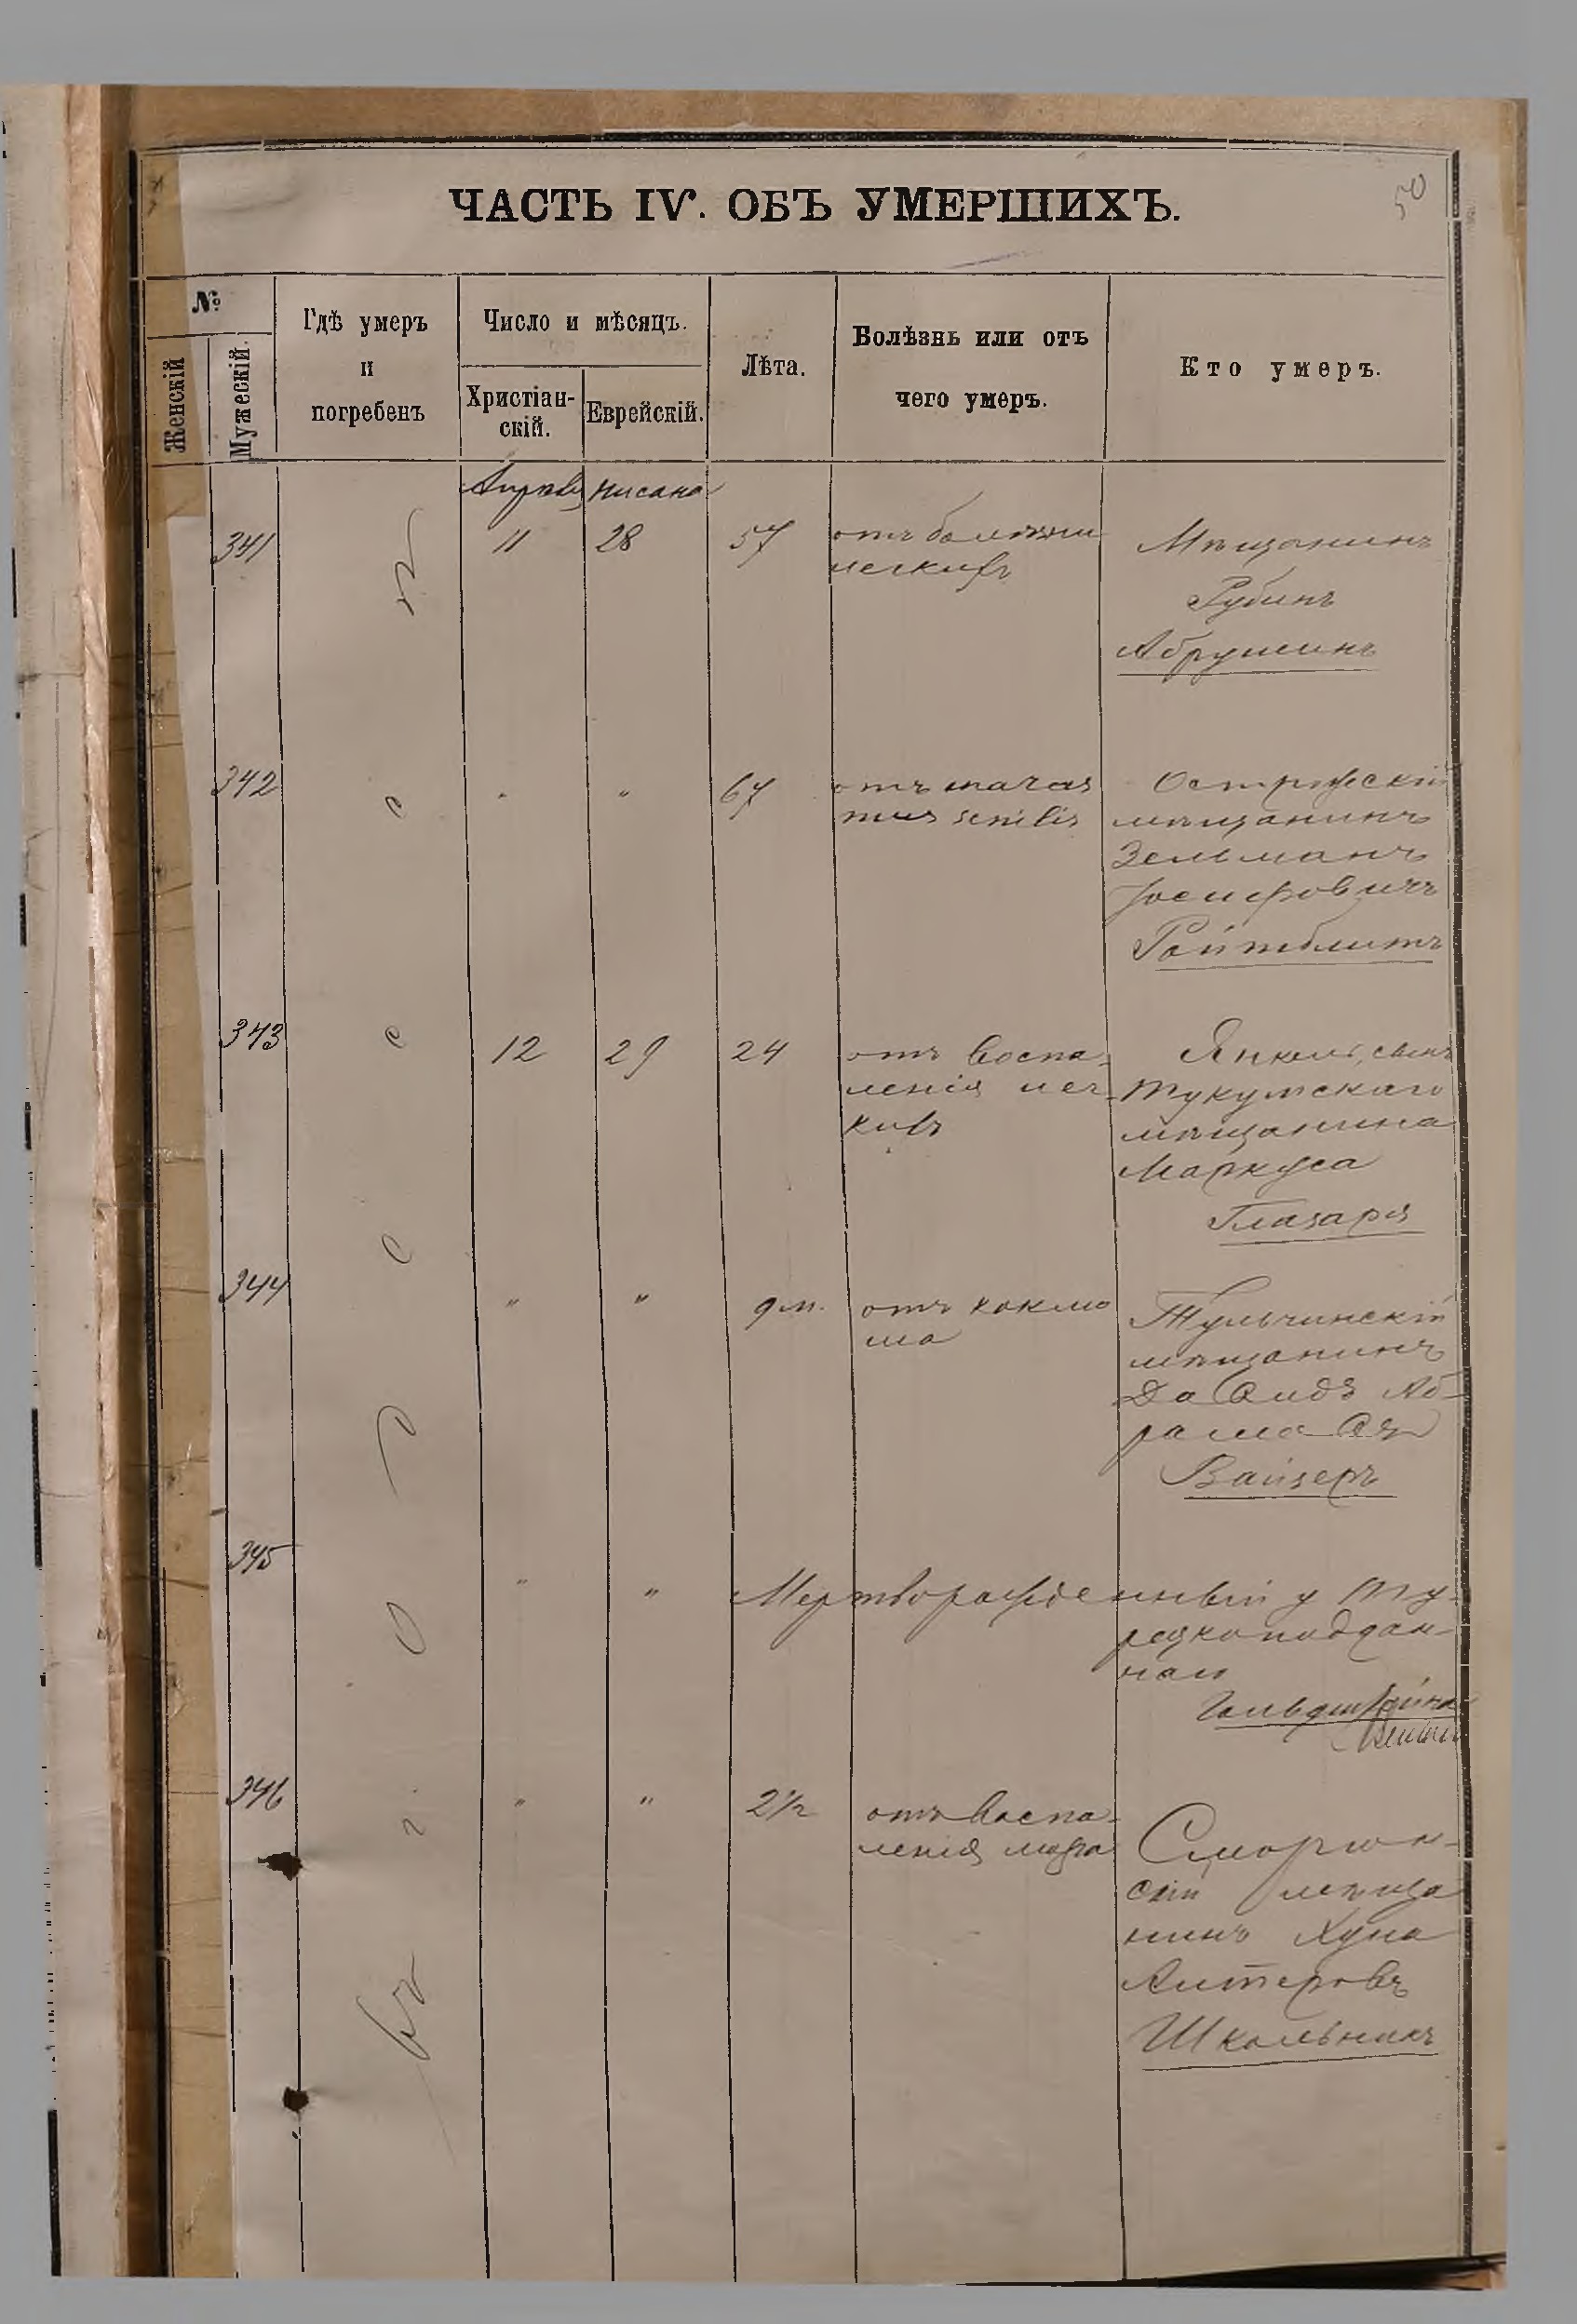 50
ЧАСТЬ IV. ОБЪ УМЕРШИХЪ.
№
Женскій
Мужескій.
Гдѣ умеръ
и
погребенъ
Число и мѣсяцъ.
Христіан-
скій.
Еврейскій.
Лѣта.
Болѣзнь или отъ
чего умеръ.
Кто умеръ.
въ г. Одессѣ
Апрель Нисана
341 11 28 57 отъ болѣзни
легкихъ
Мѣщанинъ
Рубинъ
Абрушинъ
342 " " 67 отъ маraз
mus senilis
Острожскій
мѣщанинъ
Зельманъ
Іосифовичъ
Ройтблитъ
343 12 29 24 отъ воспа-
ленія лег-
кихъ
Янкель, сынъ
Тукумскаго
мѣщанина
Маркуса
Глазаря
344 " " 9 м. отъ коклю
ша
Тульчинскій
мѣщанинъ
Давидъ Аб-
рамовъ
Вайзеръ
345 " " Мертворожденный у ту-
рецкоподдан-
наго
Гольдштейна
346 " " 2½ отъ воспа-
ленія мозга
Сморгон-
скій мѣща
нинъ Хуна
Алтеровъ
Школьникъ